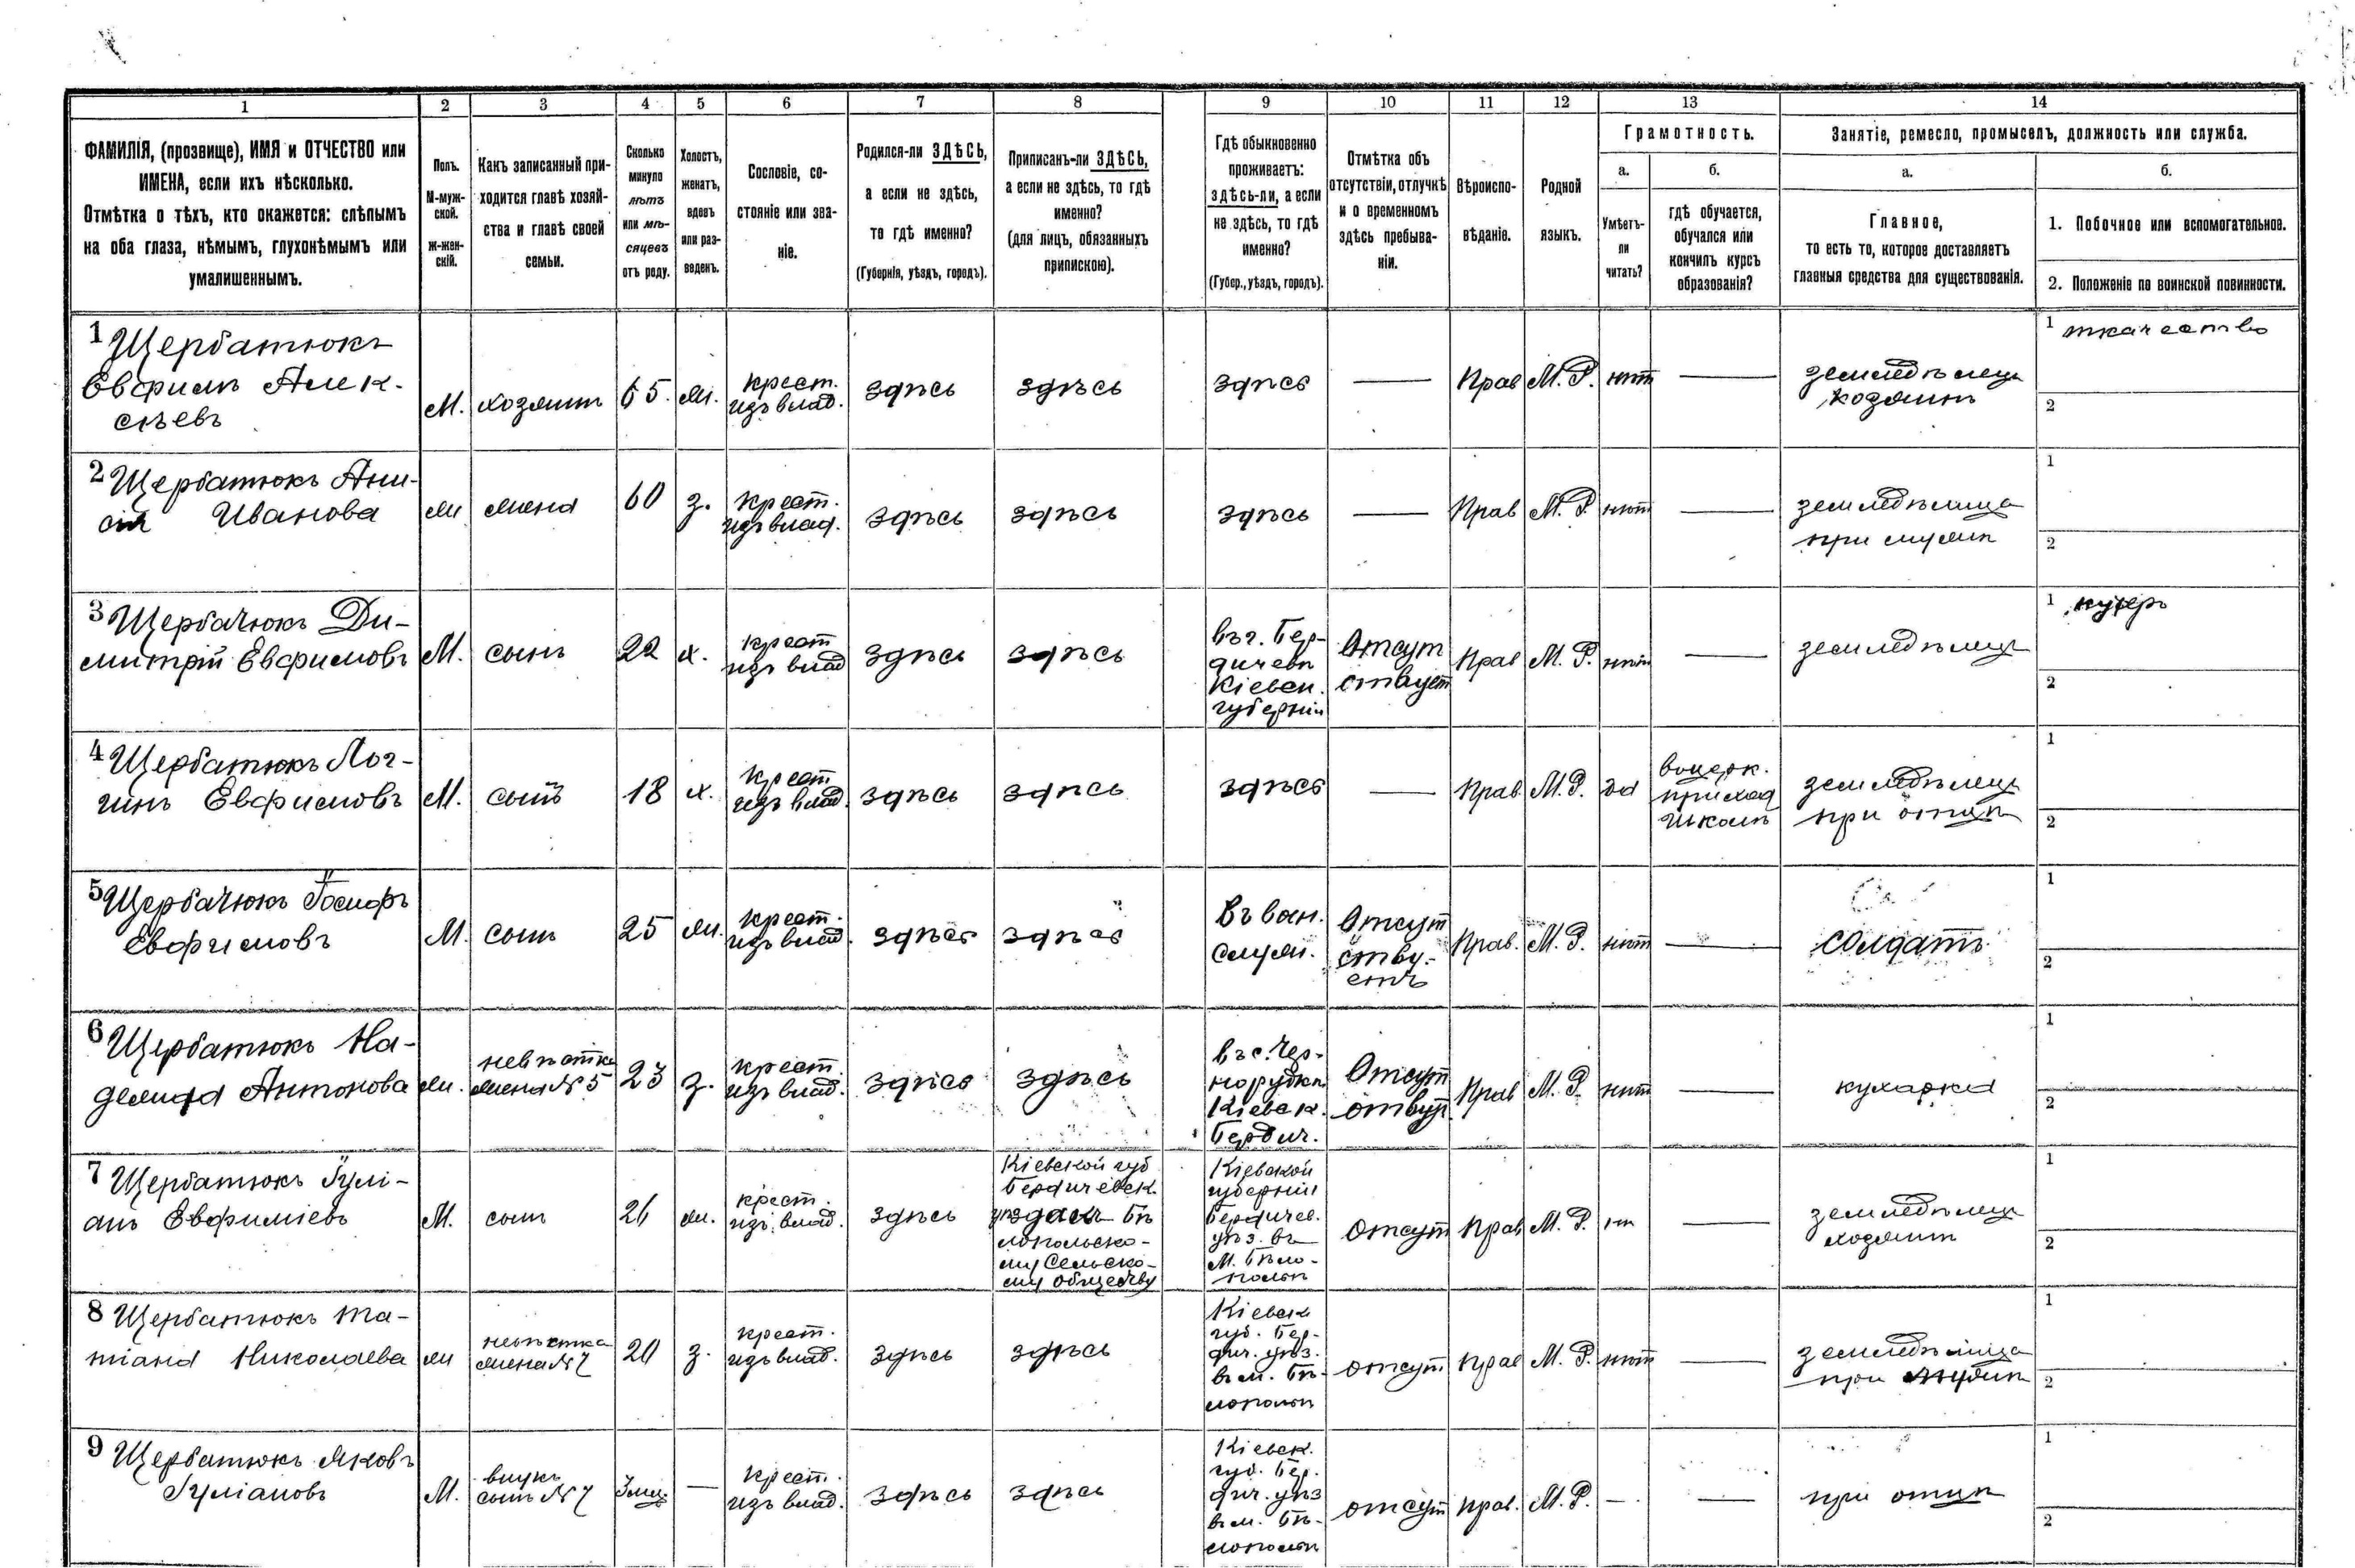 1 2 3 4 5 6 7 8 9 10 11 12 13 14
ФАМИЛІЯ, (прозвище), ИМЯ и ОТЧЕСТВО или
ИМЕНА, если ихъ нѣсколько.
Отмѣтка о тѣхъ, кто окажется: слѣпымъ
на оба глаза, нѣмымъ, глухонѣмымъ или
умалишеннымъ.
Полъ.
М-муж-
ской.
ж-жен-
скій.
Какъ записанный при-
ходится главѣ хозяй-
ства и главѣ своей
семьи.
Сколько
минуло
лѣтъ
или мѣ-
сяцевъ
отъ роду.
Холостъ,
женатъ,
вдовъ
или раз-
веденъ.
Сословіе, со-
стояніе или зва-
ніе.
Родился-ли ЗДѢСЬ,
а если не здѣсь,
то гдѣ именно?
(Губернія, уѣздъ, городъ).
Приписанъ-ли ЗДѢСЬ,
а если не здѣсь, то гдѣ
именно?
(для лицъ, обязанныхъ
припискою).
Гдѣ обыкновенно
проживаетъ:
здѣсь-ли, а если
не здѣсь, то гдѣ
именно?
(Губер., уѣздъ, городъ).
Отмѣтка объ
отсутствіи, отлучкѣ
и о временномъ
здѣсь пребыва-
ніи.
Вѣроиспо-
вѣданіе.
Родной
языкъ.
Грамотность.
а.
Умѣетъ-
ли
читать?
б.
гдѣ обучается,
обучался или
кончилъ курсъ
образованія?
Занятіе, ремесло, промыселъ, должность или служба.
а.
Главное,
то есть то, которое доставляетъ
главныя средства для существованія.
б.
1. Побочное или вспомогательное.
2. Положеніе по воинской повинности.
1 Щербатюкъ
Евфимъ Алек-
сѣевъ
М.
хозяинъ
65.
ж.
крест.
изъ влад.
здѣсь
здѣсь
здѣсь
—
Прав
М. Р.
нѣт
—
земледѣлецъ
хозяинъ
1 ткачество
2
2 Щербатюкъ Ани-
сія Иванова
ж
жена
60
з.
крест.
изъ влад.
здѣсь
здѣсь
здѣсь
—
Прав
М. Р.
нѣт
—
земледѣлица
при мужѣ
1
2
3 Щербачюкъ Ди-
митрій Евфимовъ
М.
сынъ
22
х.
крест
изъ влад
здѣсь
здѣсь
въ г. Бер-
дичевѣ
Кіевск.
губерніи
Отсут
ствует
Прав
М. Р.
нѣт
—
земледѣлецъ
1 кучеръ
2
4 Щербатюкъ Лог-
гинъ Евфимовъ
М.
сынъ
18
х.
крест
изъ влад.
здѣсь
здѣсь
здѣсь
—
Прав.
М. Р.
да
в церк.
приход
школѣ
земледѣлецъ
при отцѣ
1
2
5 Щербачюкъ
Евфимовъ
М.
сынъ
25
ж.
крест.
изъ влад.
здѣсь
здѣсь
въ воен.
служ.
Отсут
ству-
етъ
Прав.
М. Р.
нѣт
—
солдатъ
1
2
6 Щербатюкъ На-
дежда Антонова
ж.
невѣстка
жена № 5
23
з.
крест.
изъ влад.
здѣсь
здѣсь
въ с. Чер-
норудкѣ
Кіевск.
Бердич.
Отсут
ствует
Прав
М. Р.
нѣт
—
кухарка
1
2
7 Щербатюкъ Іулі-
анъ Евфиміевъ
М.
сынъ
26
ж.
крест.
изъ влад.
здѣсь
Кіевской губ
Бердичевск.
уѣзда къ Бѣ
лопольско-
му Сельско-
му обществу
Кіевской
губерніи
Бердичев.
уѣз. въ
М. Бѣло-
польѣ
отсут
Прав
М. Р.
—
земледѣлецъ
хозяинъ
1
2
8 Щербатюкъ Та-
тіана Николаева
ж
невѣстка
жена № 7
20
з.
крест.
изъ влад.
здѣсь
здѣсь
Кіевск
губ. Бер-
дич. уѣз.
въ м. Бѣ-
лопольѣ
отсут
Прав
М. Р.
нѣт
—
земледѣлица
при мужѣ
1
2
9 Щербатюкъ Яковъ
Іуліановъ
М.
внукъ
сынъ № 7
3 мц.
—
крест.
изъ влад.
здѣсь
здѣсь
Кіевск.
губ. Бер.
дич. уѣз
въ м. Бѣ-
лопольѣ
отсут
Прав.
М. Р.
—
—
при отцѣ
1
2